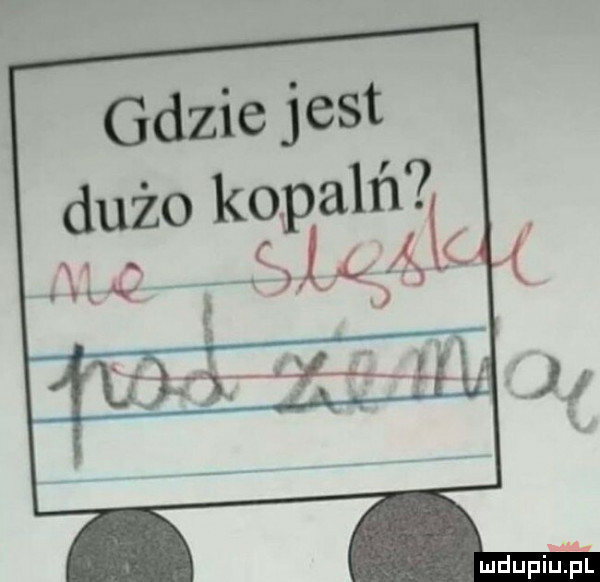 Gdzie jest
dużo kopalń?
na Śląsku
pod ziemią
mdupiu.pl